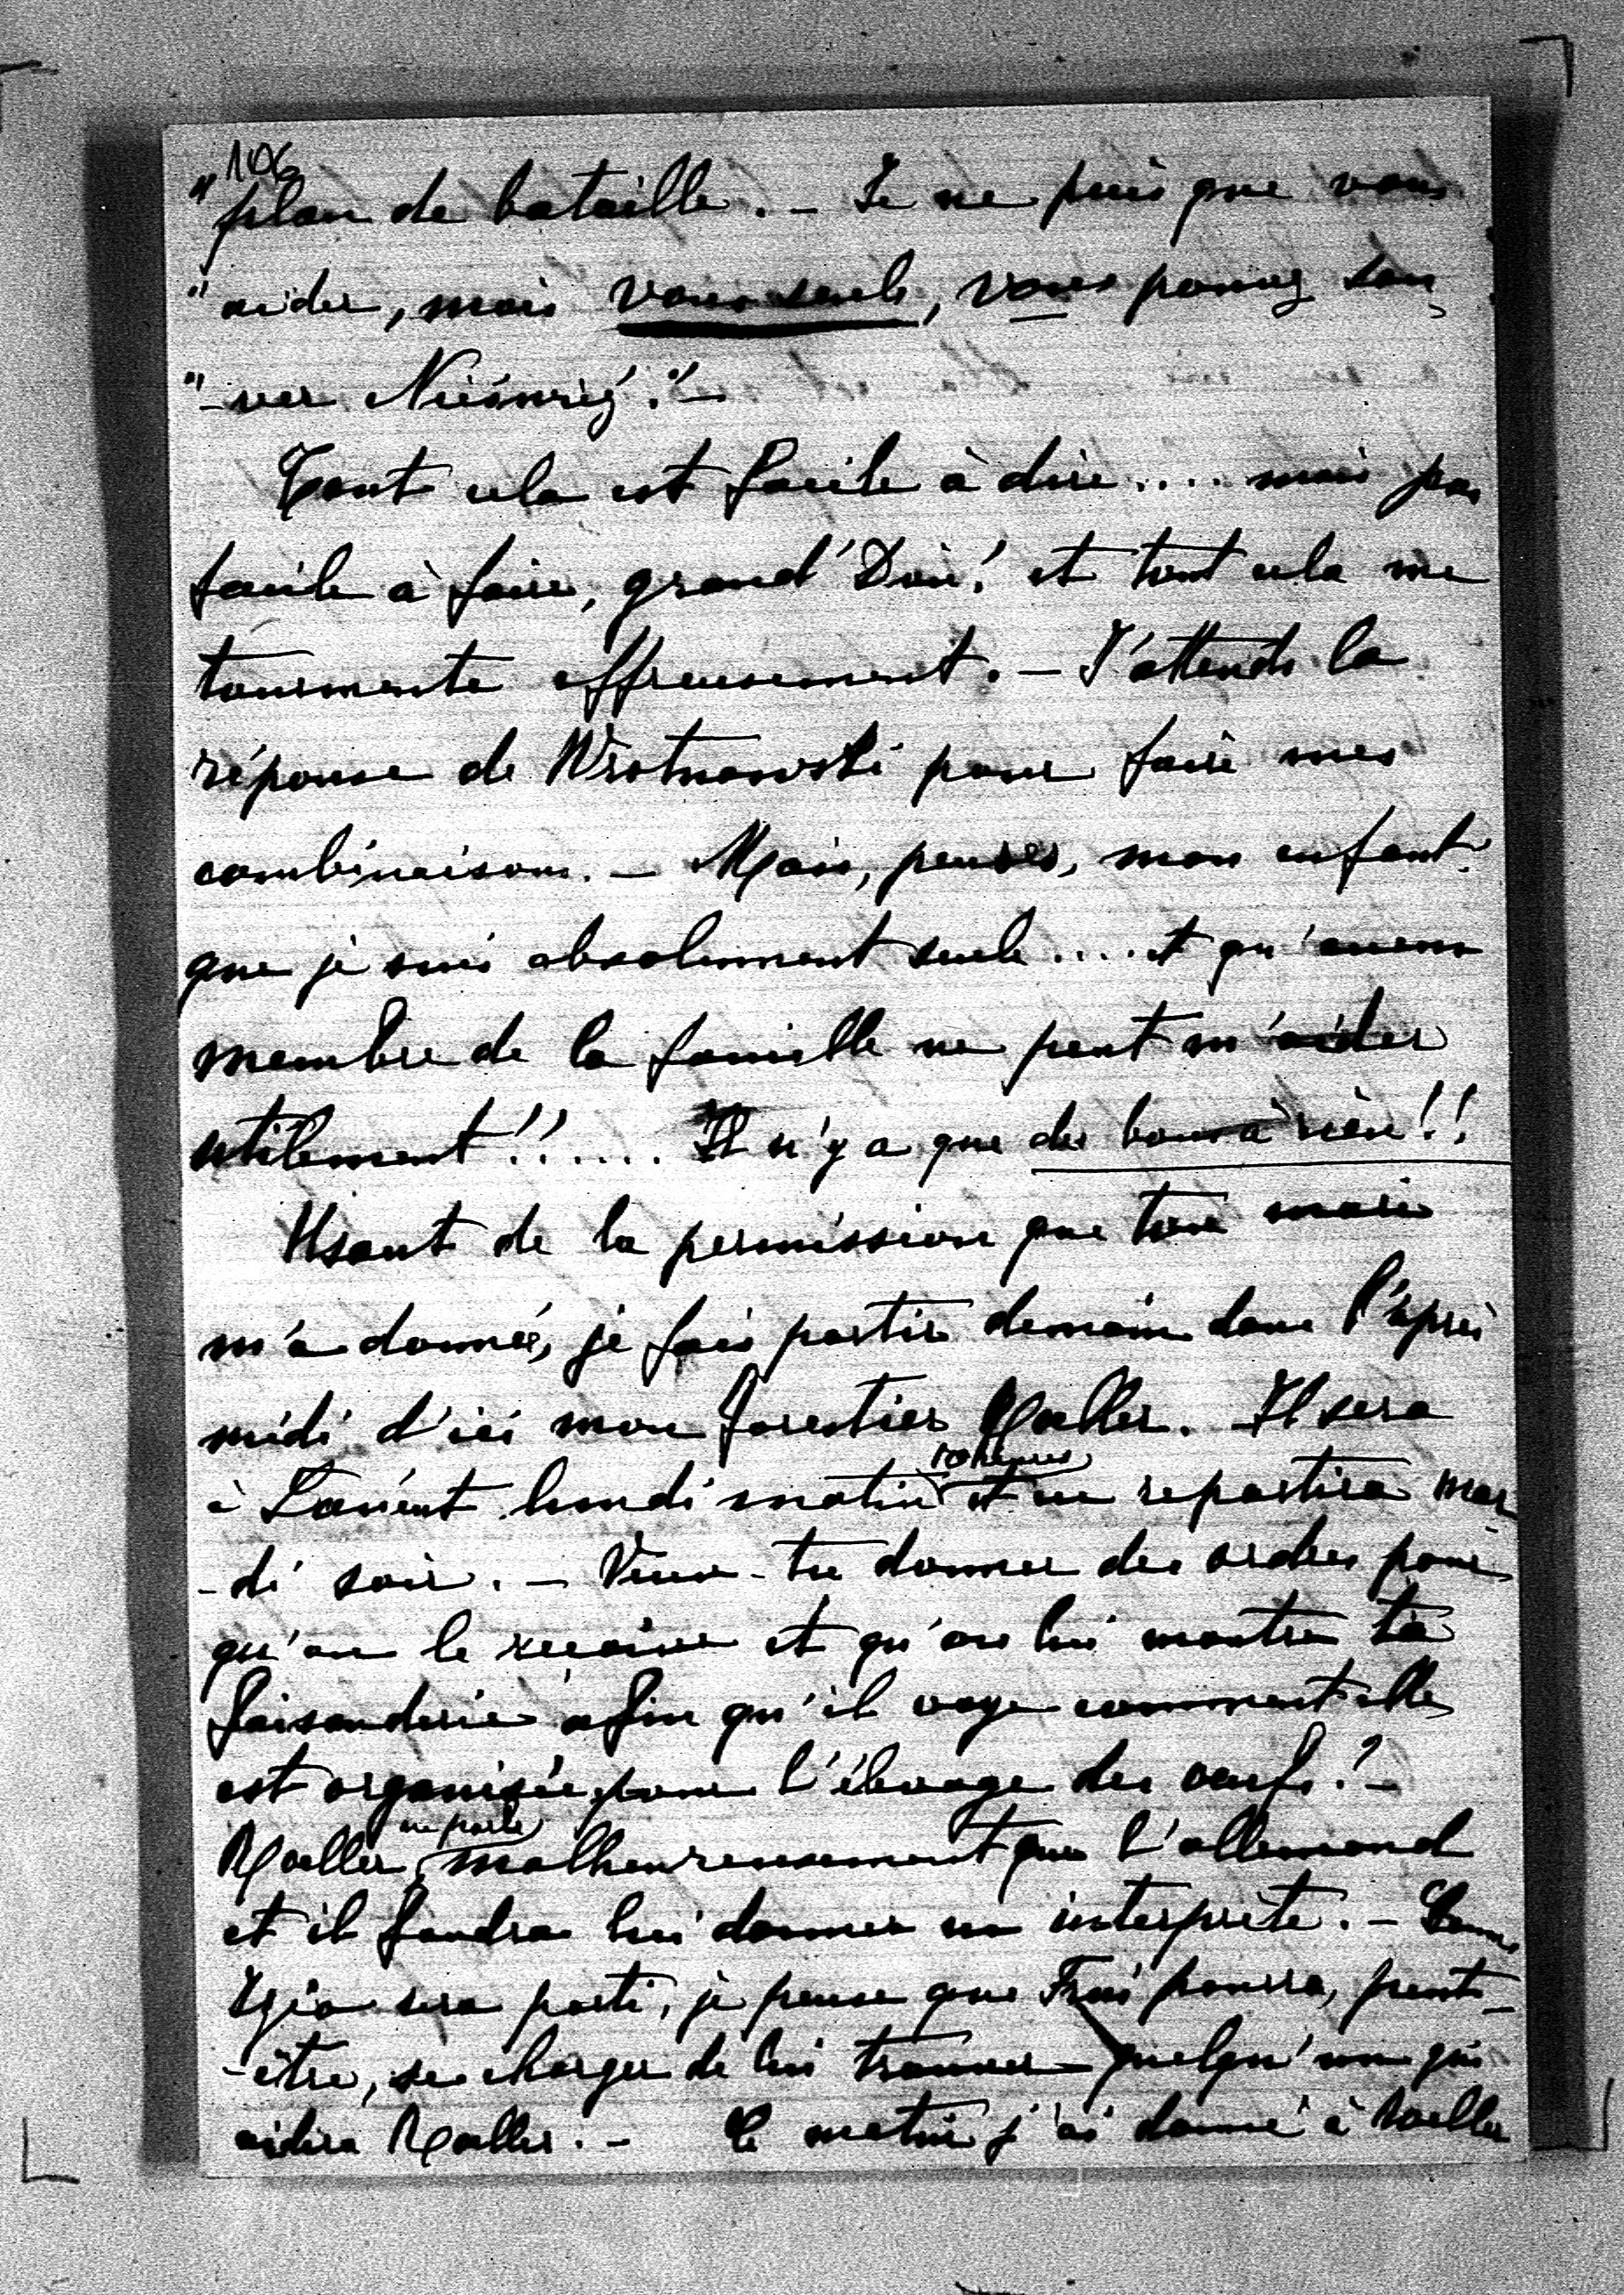 106
"plan de bataille. — Je ne puis que vous
"aider, mais vous seule, vous pouvez sau-
"-ver Nieśwież." —
Tout cela est facile à dire.... mais pas
facile à faire, grand' Dieu! et tout cela me
tourmente affreusement. — J'attends la
réponse de Wrotnowski pour faire mes
combinaisons. — Mais, penses, mon enfant,
que je suis absolument seule.... et qu'aucun
membre de la famille ne peut m'aider
utilement!!...... Il n'y a que des bons à rien!!
Usant de la permission que ton mari
m'a donnée, je fais partir demain dans l'après
midi d'ici mon forestier Moeller. Il sera
à Łańcut lundi matin 10 heures et en repartira mar-
-di soir. — Veux-tu donner des ordres pour
qu'on le reçoive et qu'on lui montre ta
faisanderie afin qu'il voye comment elle
est organisée pour l'élevage des oeufs? —
Moeller ne parle malheureusement que l'allemand
et il faudra lui donner un interprète. — Comme
sera parti, je pense que pourra, peut-
-être, se charger de lui trouver quelqu'un qui
aidera Moeller. — Ce matin j'ai donné à Moeller